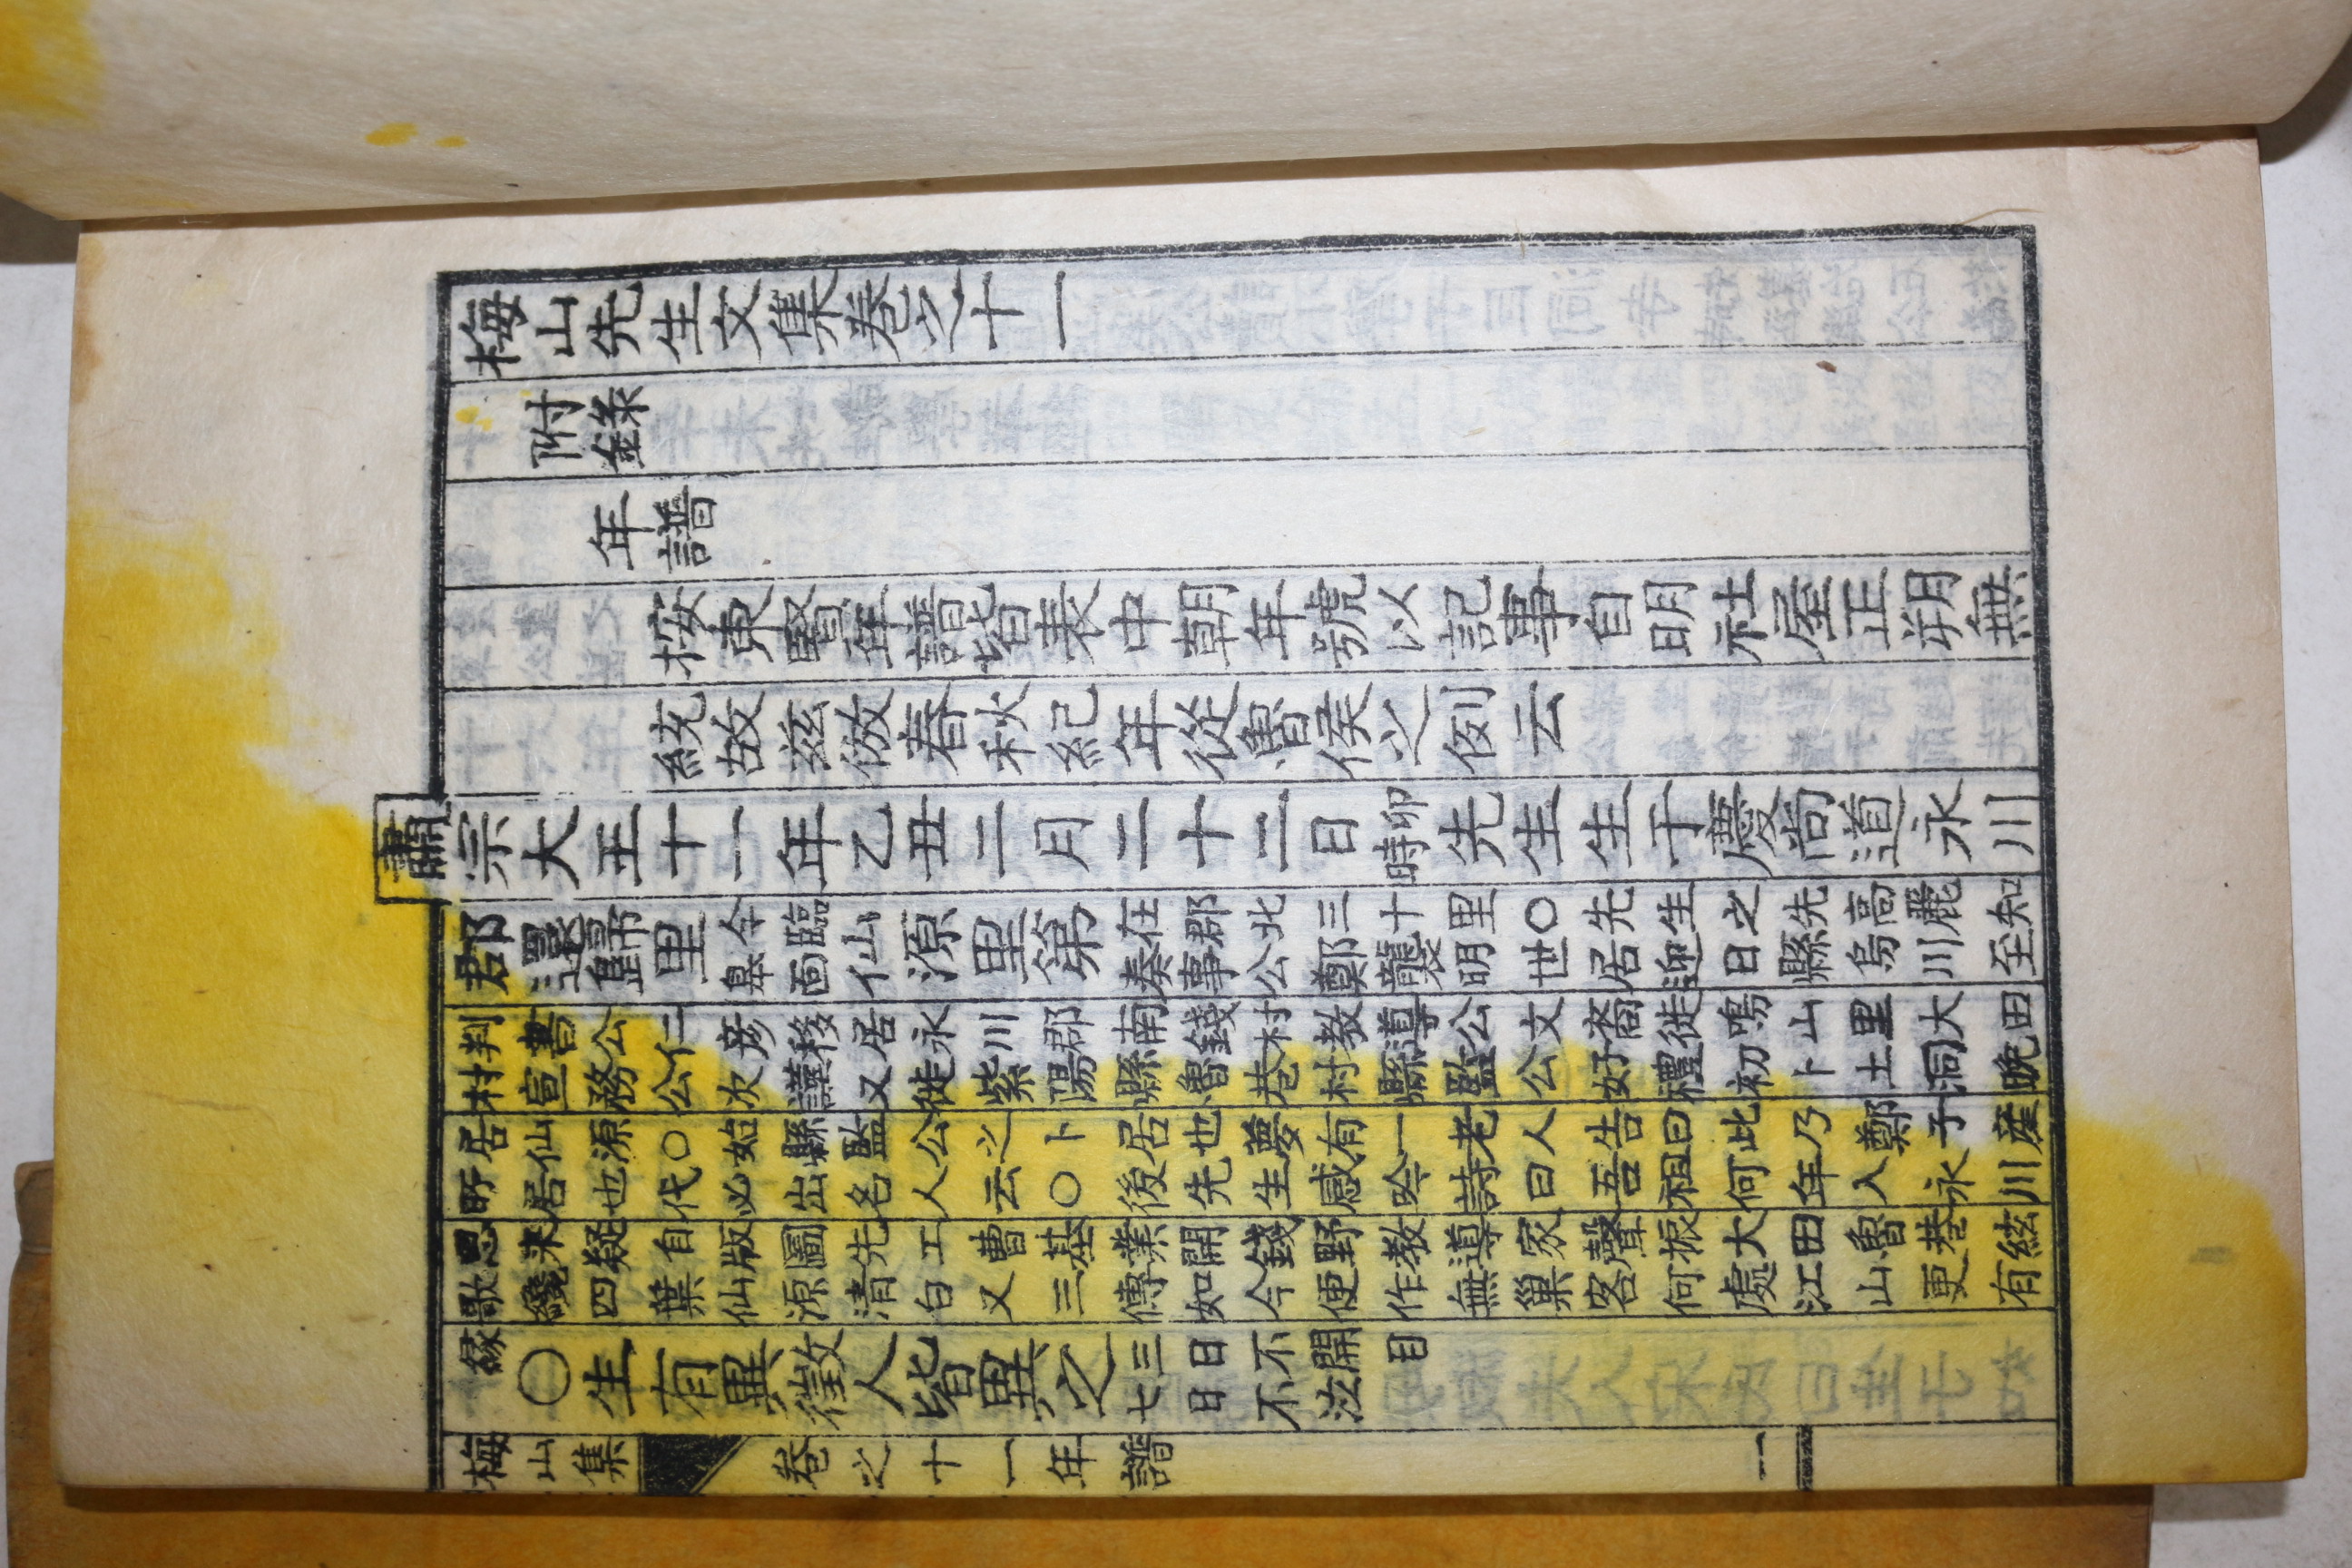 梅山先生文集卷之十一
附錄
年譜
按東賢年譜皆表中朝年號以記事自明社屋正朔無
統故玆倣春秋紀年從魯侯之例云
肅宗大王十一年乙丑二月二十二日卯時先生生于慶尚道永川
郡還歸里今臨皐面仙源里第在郡北三十里〇先生之先高麗知奏事公鄭襲明世居迎日縣烏川至
判書公仁彦移居永川郡南錢村教導公文裔徙鳴山里大田村宣務公次謹又徙紫陽縣魯巷村縣監公好禮初卜土洞晚
居仙源〇始縣監公之卜居也夢有一老人告曰此乃鄭子産所居也代必出名人云〇後先生感吟詩曰吾祖何年入永川
思来疑自版圖先工曹基業開錢野教導家聲振大田魯巷絃歌纔四葉仙源清白又三傳如今便作無巢客何處江山更有
緣〇生有異徵人皆異之三日不開目七日不泣
梅山集 卷之十一年譜 一